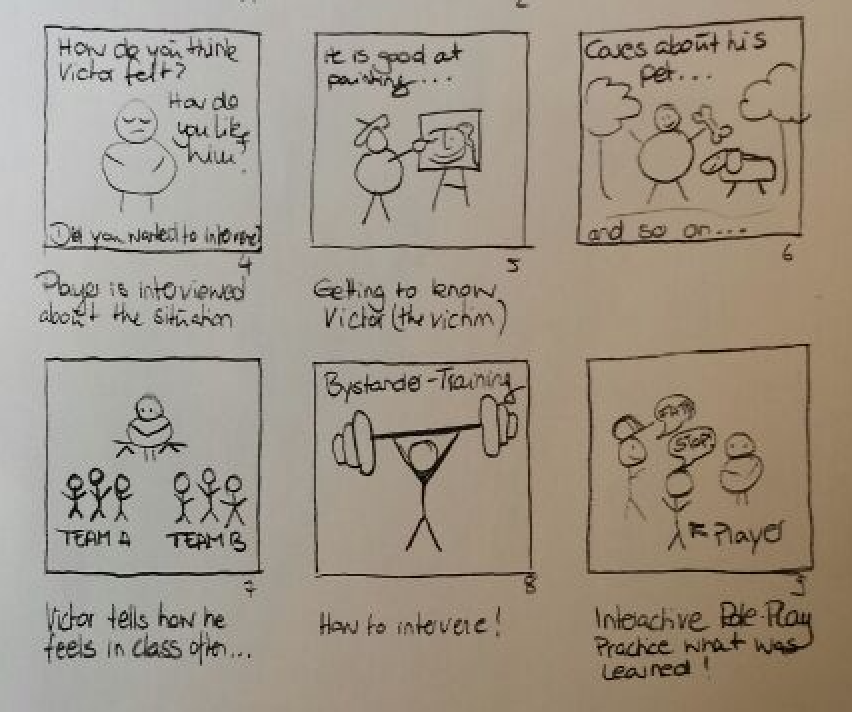 2
How do you think
Victor felt?
How do
you like
him?
Did you wanted to intervene?
4
Player is interviewed
about the situation
He is good at
painting...
5
Getting to know
Victor (the victim)
Cares about his
pet...
and so on...
6
TEAM A
TEAM B
7
Victor tells how he
feels in class often...
Bystander-Training
8
How to intervere!
STOP
Player
9
Interactive Role-Play
Practice what was
Learned!